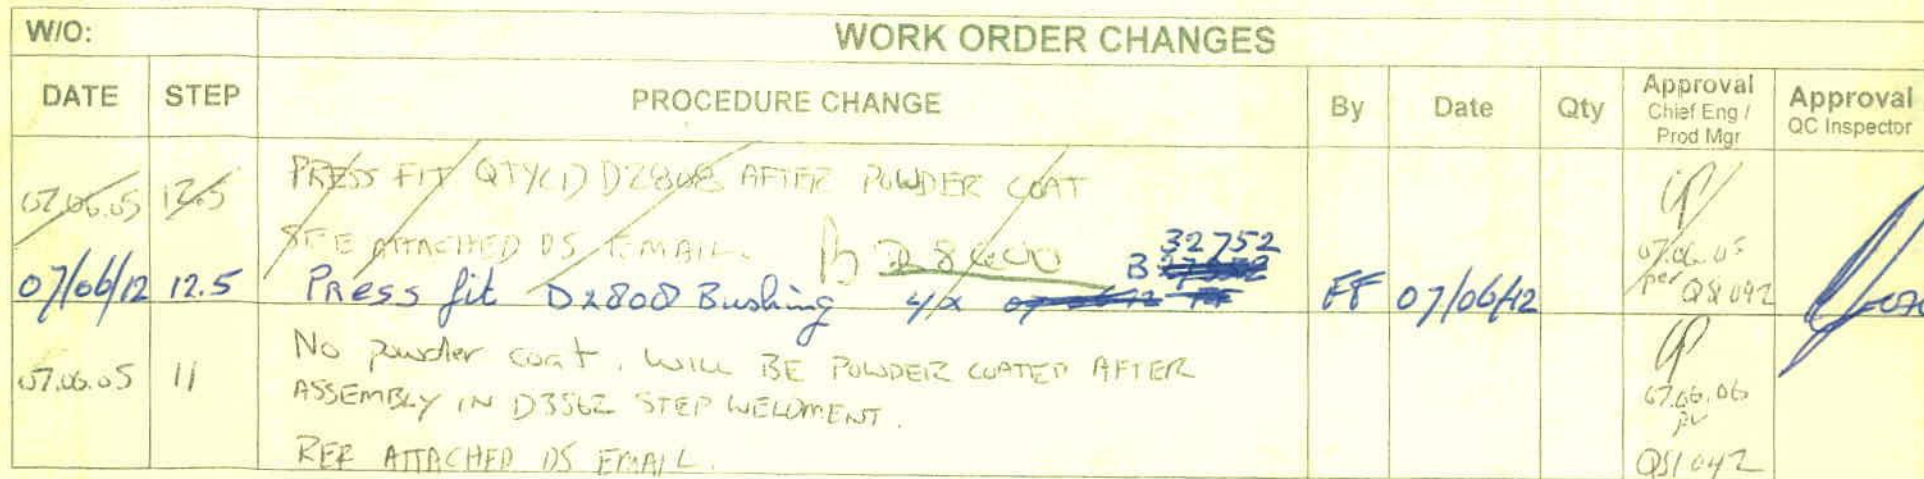 W/O: WORK ORDER CHANGES
DATE STEP PROCEDURE CHANGE By Date Qty Approval Chief Eng / Prod Mgr Approval QC Inspector
07.06.05 12.5 PRESS FIT QTY(1) D2808 AFTER POWDER COAT
SEE ATTACHED DS EMAIL. 07.06.05
B 32752
per QSI 042
07/06/12 12.5 Press fit D2808 Bushing EF 07/06/12
07.06.05 11 No powder coat. WILL BE POWDER COATED AFTER
ASSEMBLY IN D3562 STEP WELDMENT. 07.06.06
REF ATTACHED DS EMAIL. QSI 042